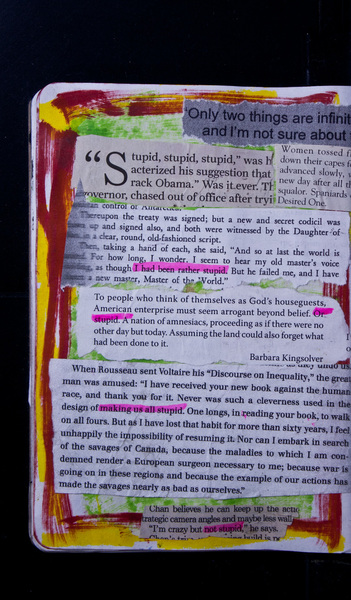 'Only two things are infinit
and I'm not sure about
Women tossed f
down their capes f
advanced slowly,
new day after all th
squalor. Spaniards
Desired One.
"Stupid, stupid, stupid," was h
acterized his suggestion that
rack Obama." Was it ever. Th
governor, chased out of office after tryi
en control of Antarctica."
Thereupon the treaty was signed; but a new and secret codicil was
up and signed also, and both were witnessed by the Daughter-of-
a clear, round, old-fashioned script.
Then, taking a hand of each, she said, "And so at last the world is
For how long, I wonder. I seem to hear my old master's voice
as though I had been rather stupid. But he failed me, and I have
a new master, Master of the World."
To people who think of themselves as God's houseguests,
American enterprise must seem arrogant beyond belief. Or
stupid. A nation of amnesiacs, proceeding as if there were no
other day but today. Assuming the land could also forget what
had been done to it.
Barbara Kingsolver
as they undo us
When Rousseau sent Voltaire his "Discourse on Inequality," the great
man was amused: "I have received your new book against the human
race, and thank you for it. Never was such a cleverness used in the
design of making us all stupid. One longs, in reading your book, to walk
on all fours. But as I have lost that habit for more than sixty years, I feel
unhappily the impossibility of resuming it. Nor can I embark in search
of the savages of Canada, because the maladies to which I am con-
demned render a European surgeon necessary to me; because war is
going on in these regions and because the example of our actions has
made the savages nearly as bad as ourselves."
Chan believes he can keep up the actio
trategic camera angles and maybe less wall
"I'm crazy but not stupid," he says.